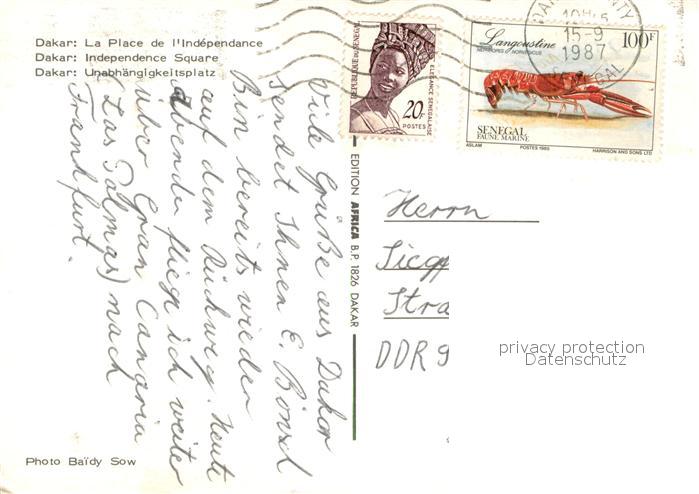 Dakar: La Place de l'Indépendance
Dakar: Independence Square
Dakar: Unabhängigkeitsplatz
Viele Grüße aus Dakar
sendet Ihnen E. Bonsel
Bin bereits wieder
auf dem Rückweg. Heute
abend fliege ich weiter
über Gran Canaria
(Las Palmas) nach
Frankfurt.
Photo Baïdy Sow
EDITION AFRICA B.P. 1826 DAKAR
REPUBLIQUE DU SENEGAL
ELEGANCE SENEGALAISE
20F
POSTES
Langoustine
NEPHROPS NORVEGICUS
100F
SENEGAL
FAUNE MARINE
ASLAM
POSTES 1985
HARRISON AND SONS LTD
15-9
1987
Herrn
Stra
DDR 9
privacy protection
Datenschutz